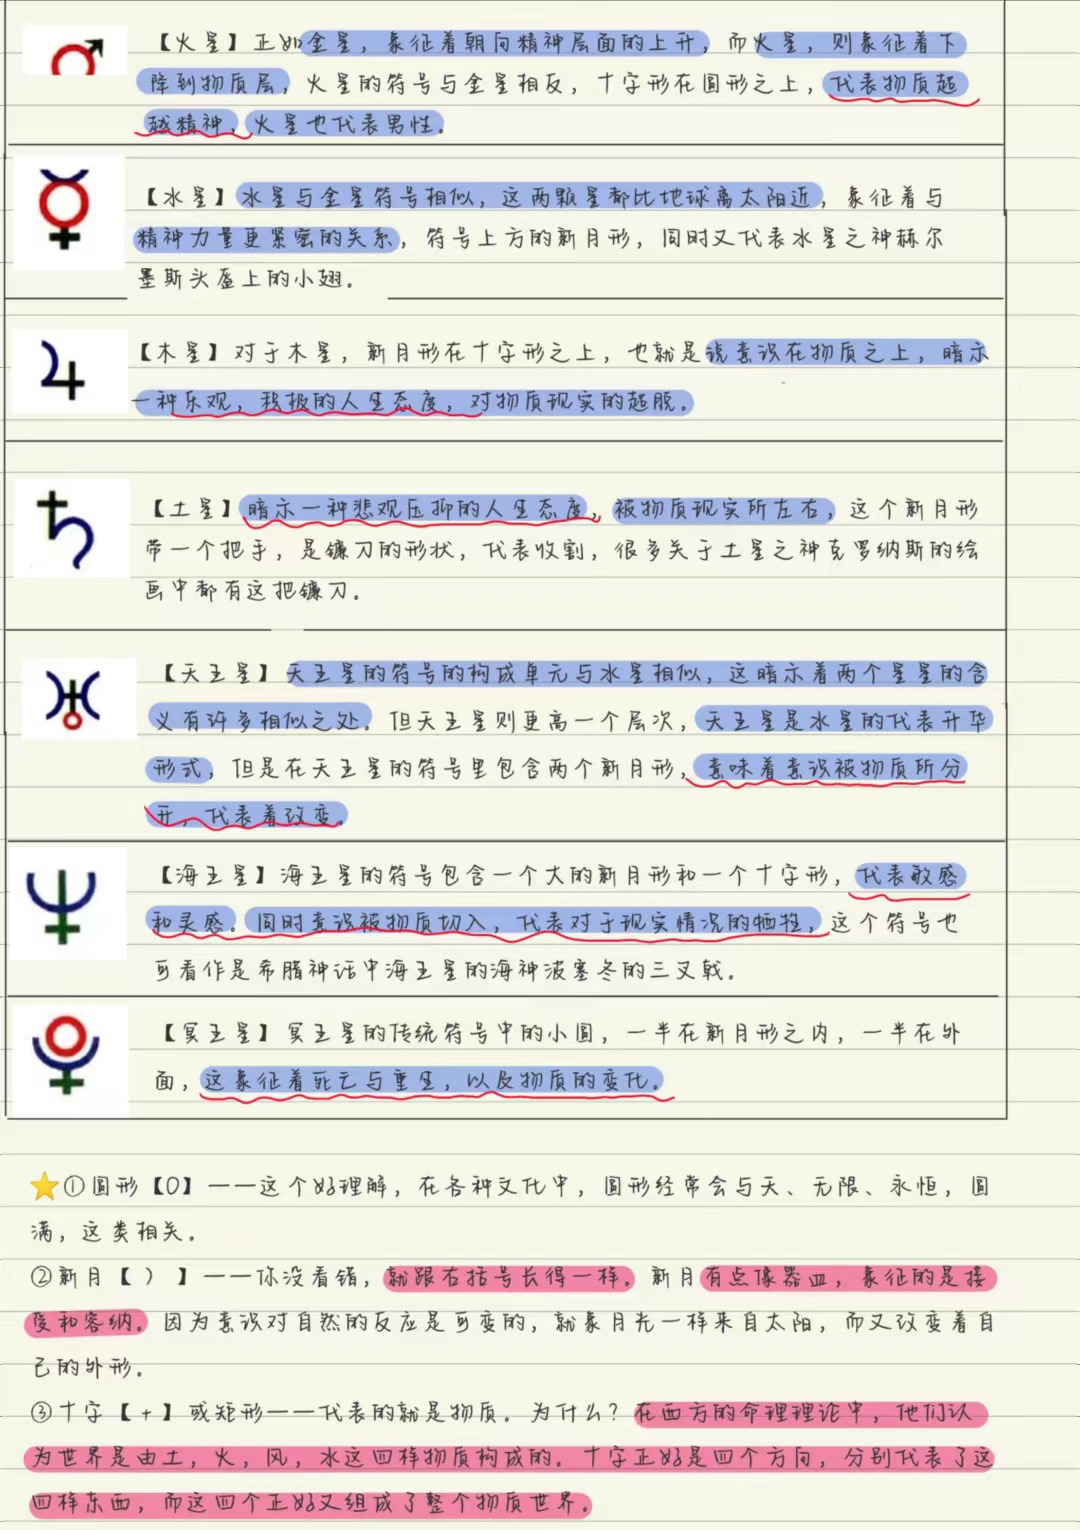 【火星】正如金星，象征着朝向精神层面的上升，而火星，则象征着下
降到物质层，火星的符号与金星相反，十字形在圆形之上，代表物质超
越精神，火星也代表男性。
【水星】水星与金星符号相似，这两颗星都比地球离太阳近，象征着与
精神力量更紧密的关系，符号上方的新月形，同时又代表水星之神赫尔
墨斯头盔上的小翅。
【木星】对于木星，新月形在十字形之上，也就是说意识在物质之上，暗示
一种乐观，积极的人生态度，对物质现实的超脱。
【土星】暗示一种悲观压抑的人生态度，被物质现实所左右，这个新月形
带一个把手，是镰刀的形状，代表收割，很多关于土星之神克罗纳斯的绘
画中都有这把镰刀。
【天王星】天王星的符号的构成单元与水星相似，这暗示着两个星星的含
义有许多相似之处。但天王星则更高一个层次，天王星是水星的代表升华
形式，但是在天王星的符号里包含两个新月形，意味着意识被物质所分
开，代表着改变。
【海王星】海王星的符号包含一个大的新月形和一个十字形，代表敏感
和灵感。同时意识被物质切入，代表对于现实情况的牺牲，这个符号也
可看作是希腊神话中海王星的海神波塞冬的三叉戟。
【冥王星】冥王星的传统符号中的小圆，一半在新月形之内，一半在外
面，这象征着死亡与重生，以及物质的变化。
①圆形【O】——这个好理解，在各种文化中，圆形经常会与天、无限、永恒，圆
满，这类相关。
②新月【 ） 】——你没看错，就跟右括号长得一样。新月有点像器皿，象征的是接
受和容纳。因为意识对自然的反应是可变的，就象月光一样来自太阳，而又改变着自
己的外形。
③十字【+】或矩形——代表的就是物质。为什么？在西方的命理理论中，他们认
为世界是由土，火，风，水这四样物质构成的。十字正好是四个方向，分别代表了这
四样东西，而这四个正好又组成了整个物质世界。